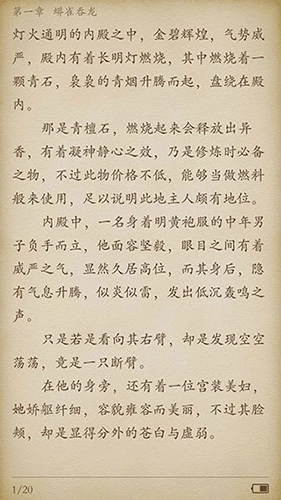 第一章 蟒雀吞龙
灯火通明的内殿之中，金碧辉煌，气势威
严，殿内有着长明灯燃烧，其中燃烧着一
颗青石，袅袅的青烟升腾而起，盘绕在殿
内。
那是青檀石，燃烧起来会释放出异
香，有着凝神静心之效，乃是修炼时必备
之物，不过此物价格不低，能够当做燃料
般来使用，足以说明此地主人颇有地位。
内殿中，一名身着明黄袍服的中年男
子负手而立，他面容坚毅，眼目之间有着
威严之气，显然久居高位，而其身后，隐
有气息升腾，似炎似雷，发出低沉轰鸣之
声。
只是若是看向其右臂，却是发现空空
荡荡，竟是一只断臂。
在他的身旁，还有着一位宫装美妇，
她娇躯纤细，容貌雍容而美丽，不过其脸
颊，却是显得分外的苍白与虚弱。
1/20